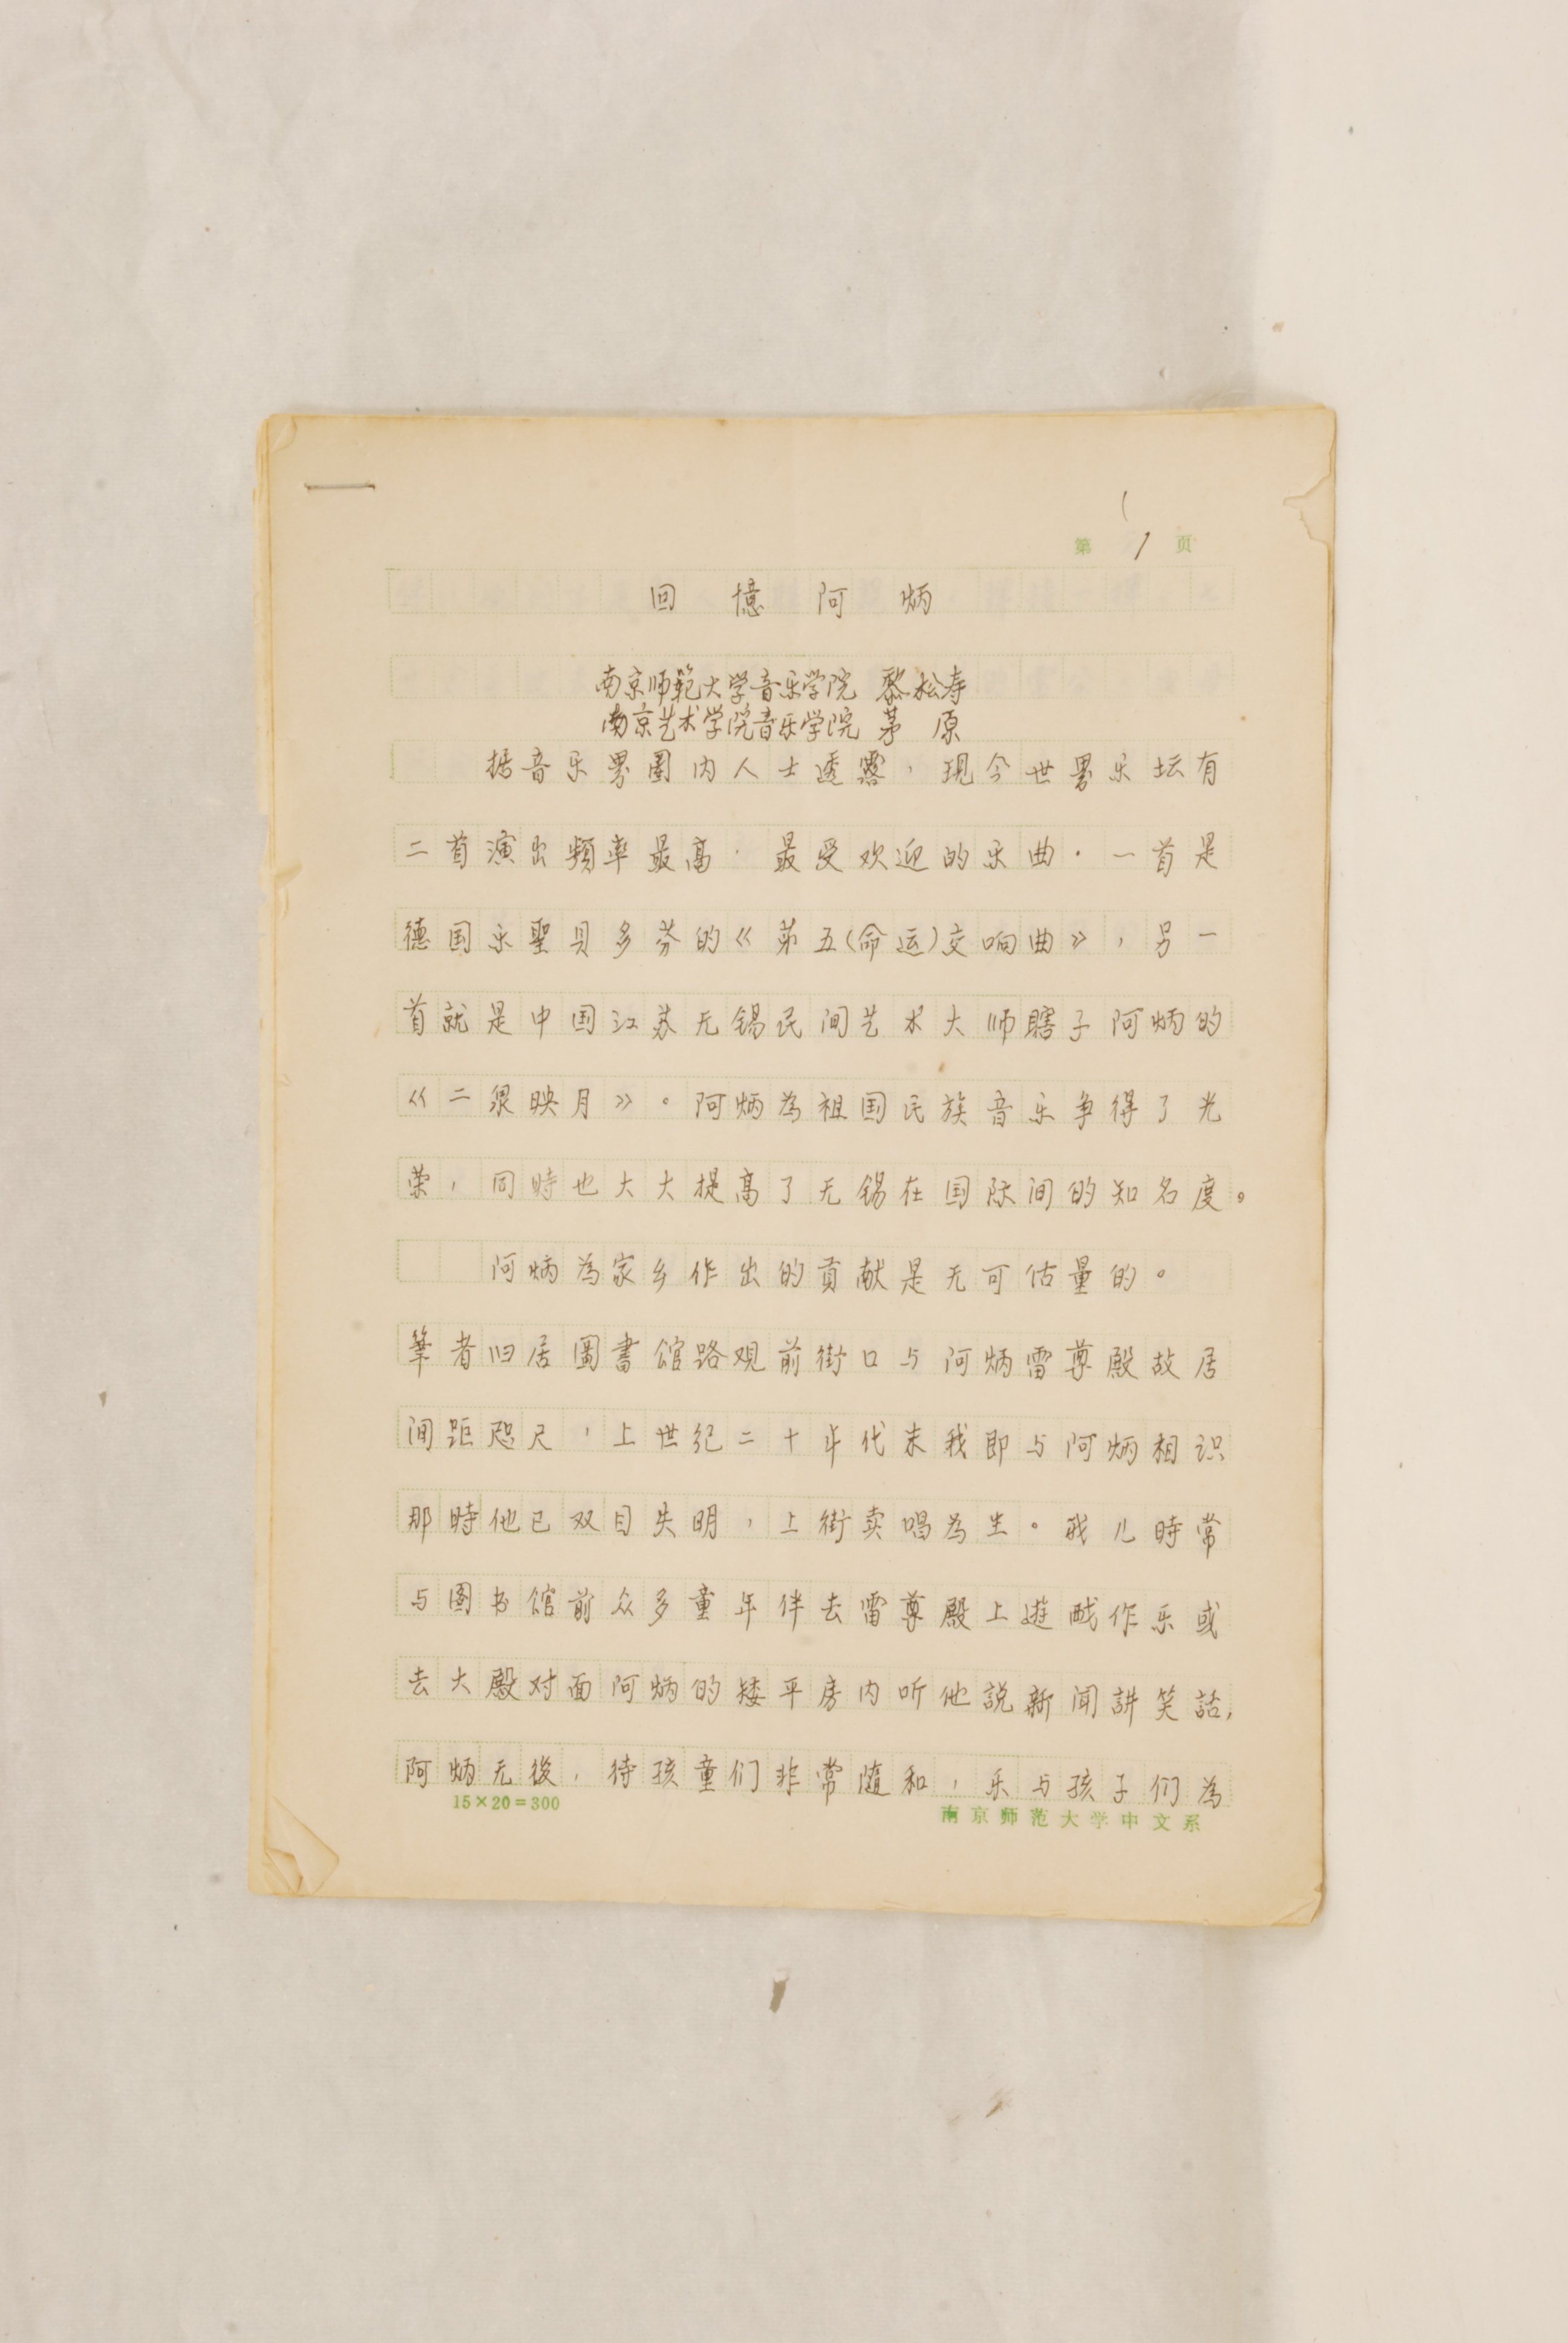 第 1 页
回憶阿炳
南京师範大学音乐学院 黎松寿
南京艺术学院音乐学院 茅 原
据音乐界圈内人士透露，现今世界乐坛有
二首演出頻率最高，最受欢迎的乐曲。一首是
德国乐聖貝多芬的《第五(命运)交响曲》，另一
首就是中国江苏无锡民间艺术大师瞎子阿炳的
《二泉映月》。阿炳為祖国民族音乐争得了光
荣，同時也大大提高了无锡在国际间的知名度。
阿炳為家乡作出的貢献是无可估量的。
筆者旧居圖書馆路观前街口与阿炳雷尊殿故居
间距咫尺，上世纪二十年代末我即与阿炳相识
那時他已双目失明，上街卖唱為生。我儿時常
与图书馆前众多童年伴去雷尊殿上遊戏作乐或
去大殿对面阿炳的矮平房内听他説新闻讲笑話，
阿炳无後，待孩童们非常随和，乐与孩子们為
15×20=300
南京师范大学中文系